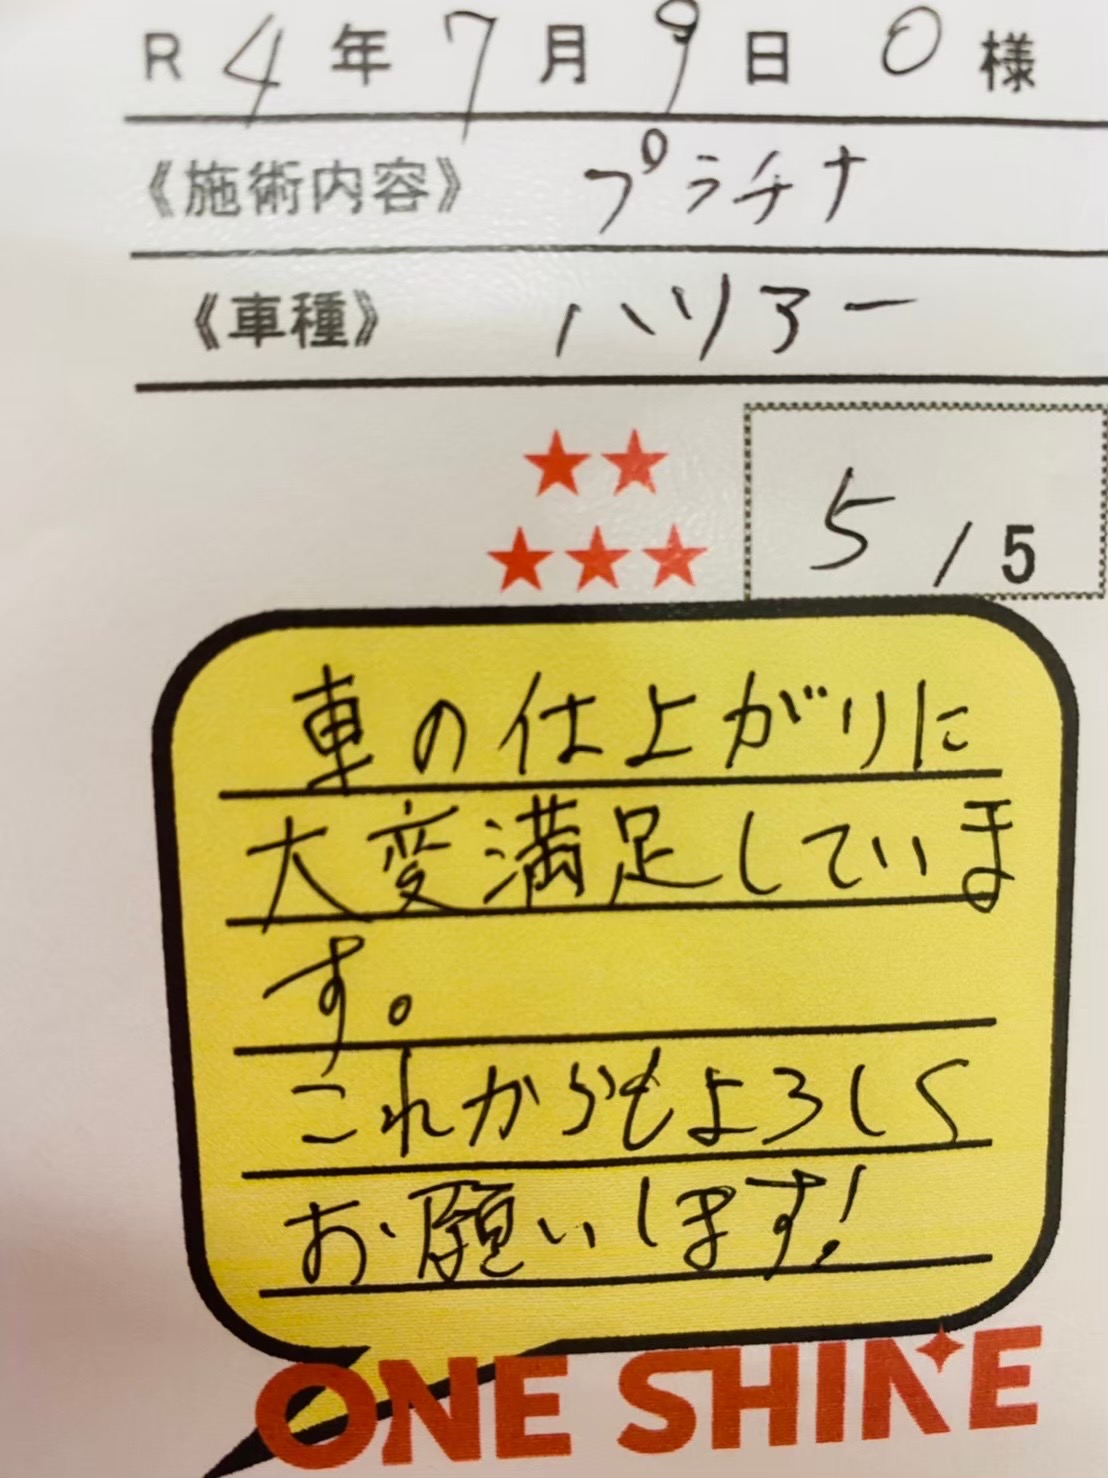 R 4 年 7 月 9 日 O 様
《施術内容》 プラチナ
《車種》 ハリアー
★★
★★★
5 / 5
車の仕上がりに
大変満足していま
す。
これからもよろしく
お願いします!
ONE SHINE